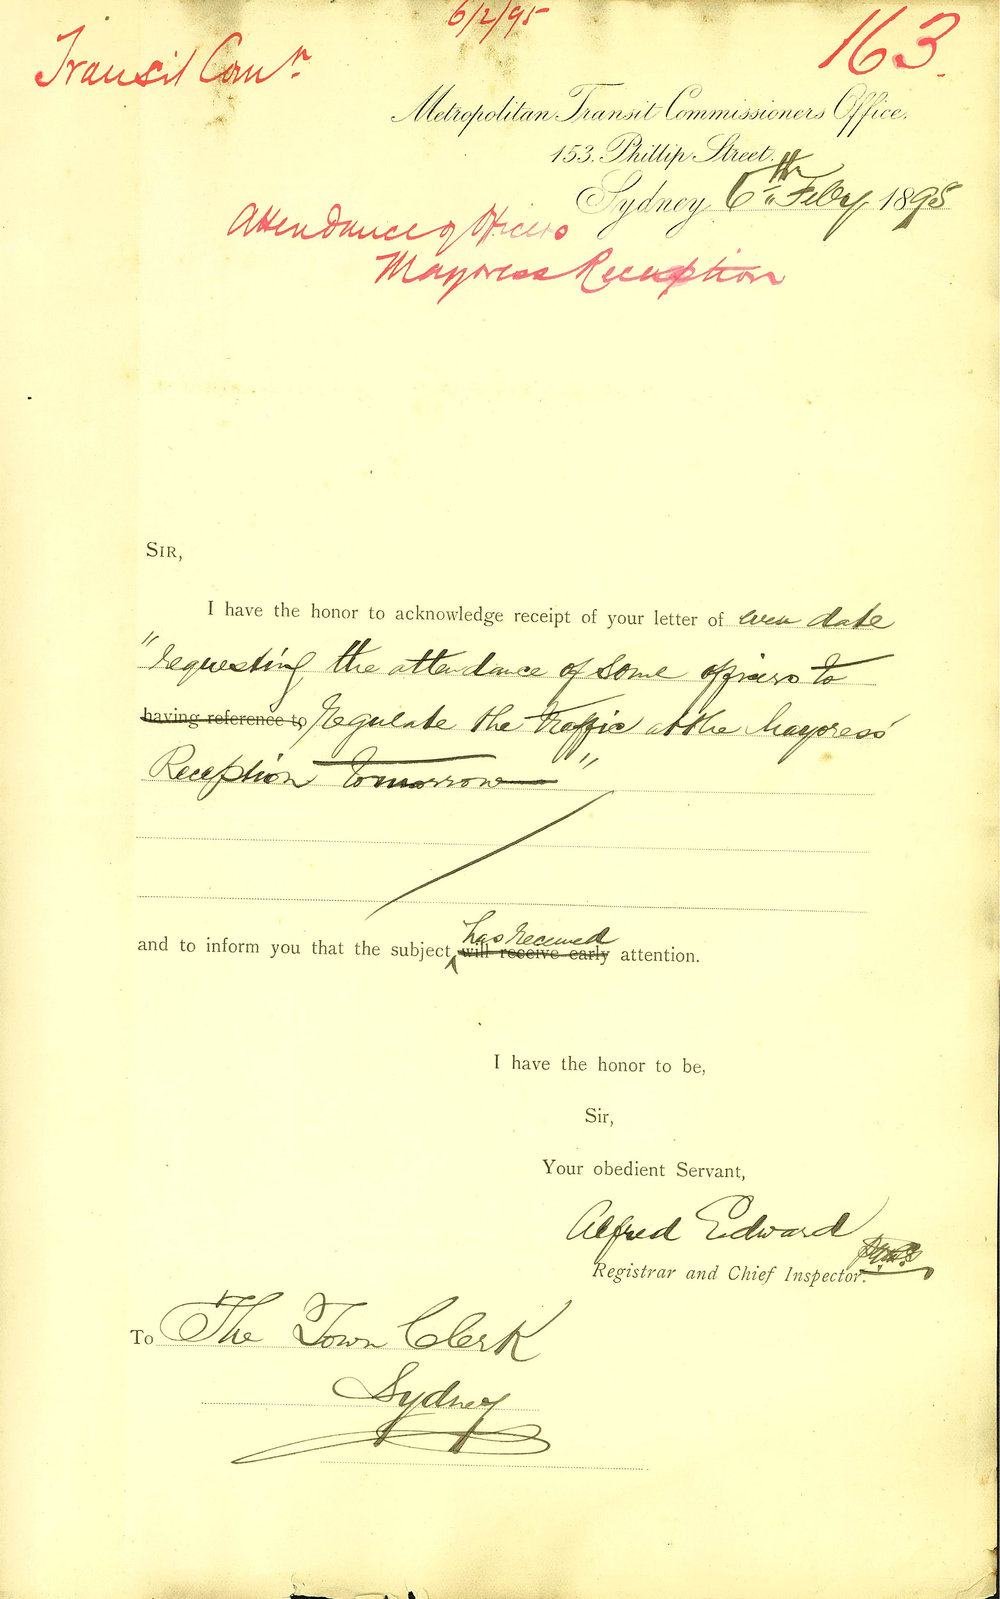 6/2/95
163.
Transit Comr
Metropolitan Transit Commissioners Office,
153, Phillip Street,
Sydney 6th Feby 1895
Attendance of Officers
Mayoress Reception
SIR,
I have the honor to acknowledge receipt of your letter of even date
"requesting the attendance of some officers to
having reference to, regulate the traffic at the Mayoress'
Reception tomorrow"
has received
and to inform you that the subject will receive early attention.
I have the honor to be,
Sir,
Your obedient Servant,
Alfred Edward
Registrar and Chief Inspector.
To The Town Clerk
Sydney